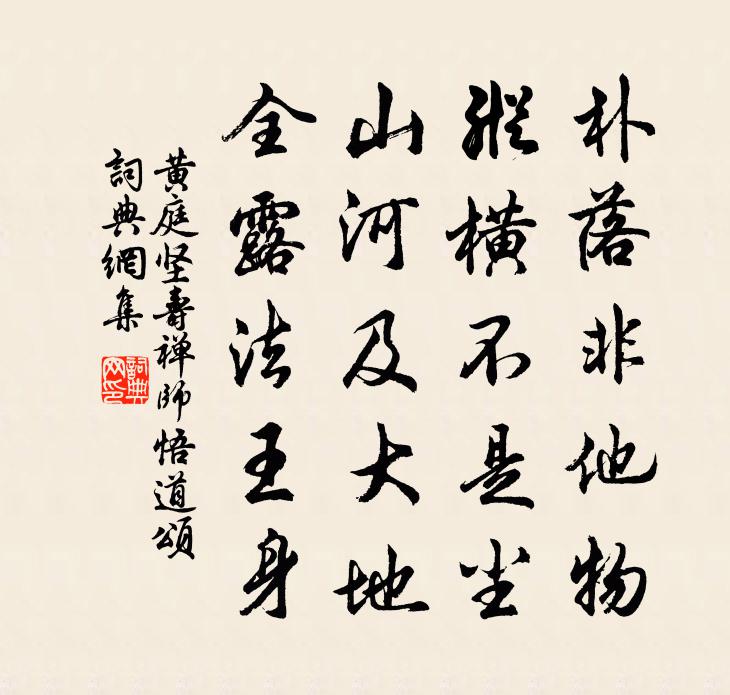 朴落非他物
縱橫不是尘
山河及大地
全露法王身
黄庭坚壽禅師悟道頌
詞典網集
詞典網印